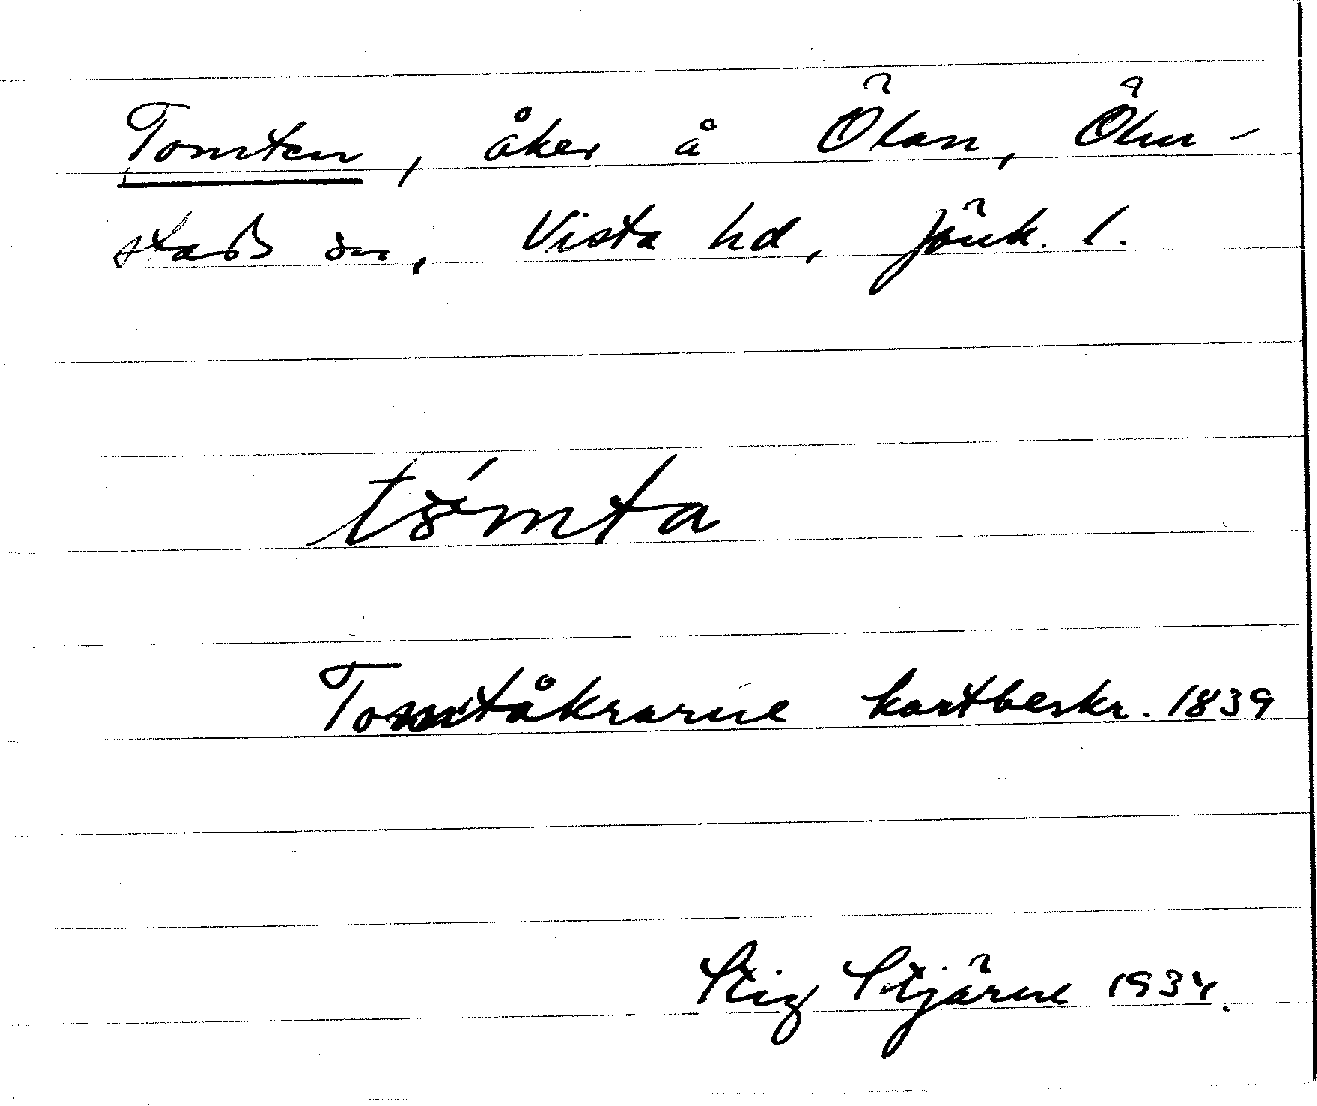 Tomten, åker å Ölan, Ölm-
stads sn, Vista hd, Jönk. l.
tómta
Tomtåkrarne kartbeskr. 1839
Stig Stjärne 1934.